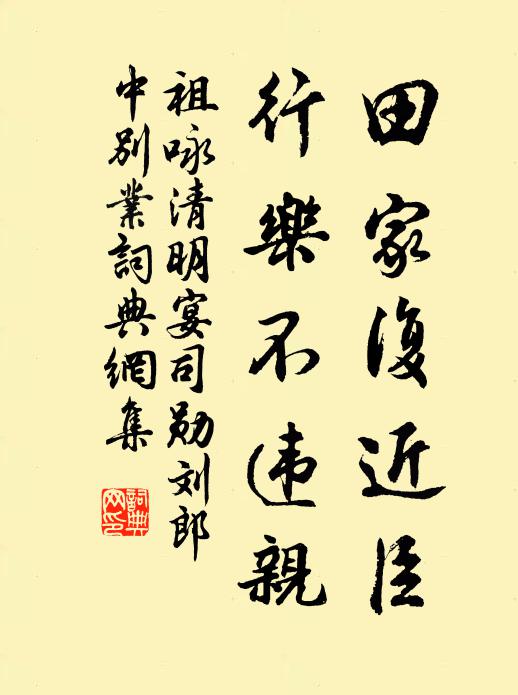 田家復近臣
行樂不违親
祖咏清明宴司勋刘郎
中别業詞典網集
詞典网印